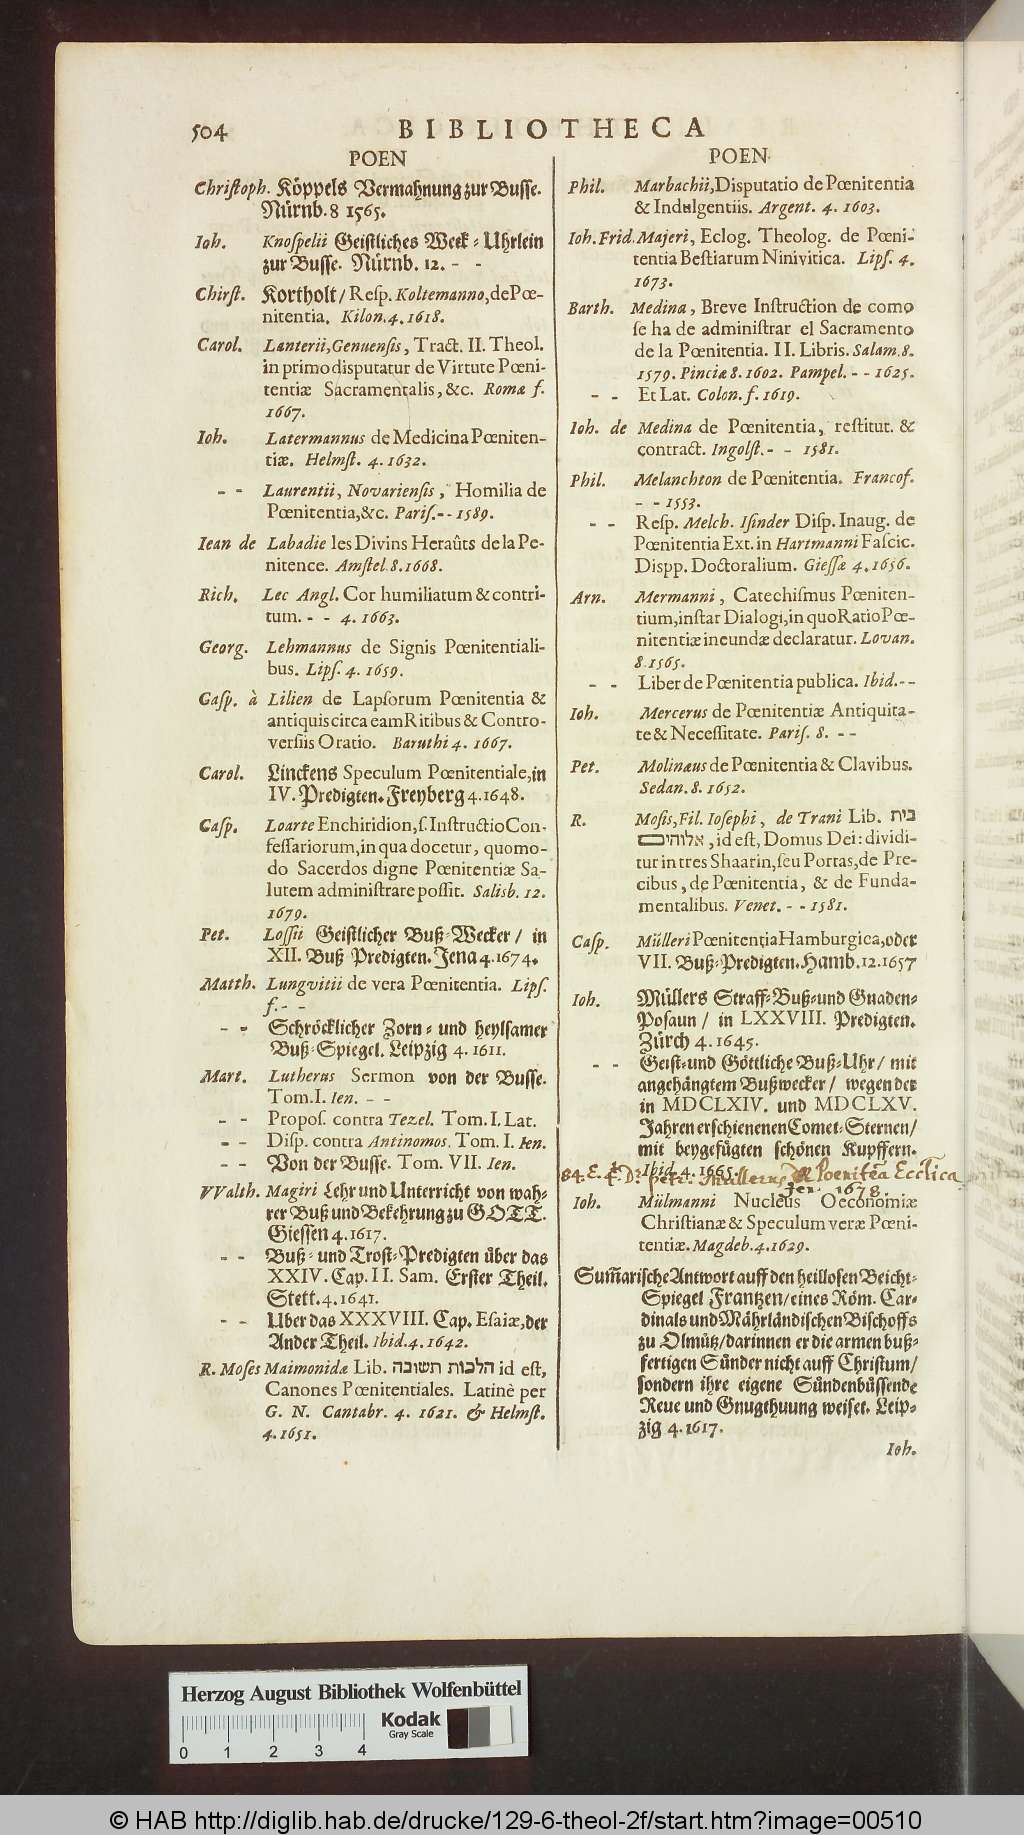 504 BIBLIOTHECA
POEN
Christoph. Köppels Vermahnung zur Busse.
Nürnb. 8 1565.
Ioh. Knospelii Geistliches Week-Uhrlein
zur Busse. Nürnb. 12. - -
Chirst. Kortholt / Resp. Koltemanno, de Pœ-
nitentia. Kilon. 4. 1618.
Carol. Lanterii, Genuensis, Tract. II. Theol.
in primo disputatur de Virtute Pœni-
tentiæ Sacramentalis, &c. Romæ f.
1667.
Ioh. Latermannus de Medicina Pœniten-
tiæ. Helmst. 4. 1632.
- - Laurentii, Novariensis, Homilia de
Pœnitentia, &c. Paris. - - 1589.
Iean de Labadie les Divins Heraûts de la Pe-
nitence. Amstel. 8. 1668.
Rich. Lec Angl. Cor humiliatum & contri-
tum. - - 4. 1663.
Georg. Lehmannus de Signis Pœnitentiali-
bus. Lips. 4. 1659.
Casp. à Lilien de Lapsorum Pœnitentia &
antiquis circa eam Ritibus & Contro-
versiis Oratio. Baruthi 4. 1667.
Carol. Linckens Speculum Pœnitentiale, in
IV. Predigten. Freyberg 4. 1648.
Casp. Loarte Enchiridion, s. Instructio Con-
fessariorum, in qua docetur, quomo-
do Sacerdos digne Pœnitentiæ Sa-
lutem administrare possit. Salisb. 12.
1679.
Pet. Lossii Geistlicher Buß-Wecker / in
XII. Buß Predigten. Jena 4. 1674.
Matth. Lungvitii de vera Pœnitentia. Lips.
f. - -
- - Schröcklicher Zorn- und heylsamer
Buß-Spiegel. Leipzig 4. 1611.
Mart. Lutherus Sermon von der Busse.
Tom. I. Ien. - -
- - Propos. contra Tezel. Tom. I. Lat.
- - Disp. contra Antinomos. Tom. I. Ien.
- - Von der Busse. Tom. VII. Ien.
VValth. Magiri Lehr und Unterricht von wah-
rer Buß und Bekehrung zu GOTT.
Giessen 4. 1617.
- - Buß- und Trost-Predigten über das
XXIV. Cap. II. Sam. Erster Theil.
Stett. 4. 1641.
- - Uber das XXXVIII. Cap. Esaiæ, der
Ander Theil. Ibid. 4. 1642.
R. Moses Maimonidæ Lib. הלכות תשובה id est,
Canones Pœnitentiales. Latinè per
G. N. Cantabr. 4. 1621. & Helmst.
4. 1651.
POEN
Phil. Marbachii, Disputatio de Pœnitentia
& Indulgentiis. Argent. 4. 1603.
Ioh. Frid. Majeri, Eclog. Theolog. de Pœni-
tentia Bestiarum Ninivitica. Lips. 4.
1673.
Barth. Medina, Breve Instruction de como
se ha de administrar el Sacramento
de la Pœnitentia. II. Libris. Salam. 8.
1579. Pinciæ 8. 1602. Pampel. - - 1625.
- - Et Lat. Colon. f. 1619.
Ioh. de Medina de Pœnitentia, restitut. &
contract. Ingolst. - - 1581.
Phil. Melanchton de Pœnitentia. Francof.
- - 1553.
- - Resp. Melch. Isinder Disp. Inaug. de
Pœnitentia Ext. in Hartmanni Fascic.
Dispp. Doctoralium. Giessæ 4. 1656.
Arn. Mermanni, Catechismus Pœniten-
tium, instar Dialogi, in quo Ratio Pœ-
nitentiæ ineundæ declaratur. Lovan.
8. 1565.
- - Liber de Pœnitentia publica. Ibid. - -
Ioh. Mercerus de Pœnitentiæ Antiquita-
te & Necessitate. Paris. 8. - -
Pet. Molinæus de Pœnitentia & Clavibus.
Sedan. 8. 1652.
R. Mosis, Fil. Iosephi, de Trani Lib. בית
אלוהים, id est, Domus Dei: dividi-
tur in tres Shaarin, seu Portas, de Pre-
cibus, de Pœnitentia, & de Funda-
mentalibus. Venet. - - 1581.
Casp. Mülleri Pœnitentia Hamburgica, oder
VII. Buß-Predigten. Hamb. 12. 1657
Ioh. Müllers Straff-Buß-und Gnaden-
Posaun / in LXXVIII. Predigten.
Zürch 4. 1645.
- - Geist-und Göttliche Buß-Uhr / mit
angehängtem Bußwecker / wegen der
in MDCLXIV. und MDCLXV.
Jahren erschienenen Comet-Sternen /
mit beygefügten schönen Kupffern.
Ibid. 4. 1665.
Petr. Müllerus de Poenitentia Ecclica
Jen. 1678.
Ioh. Mülmanni Nucleus Oeconomiæ
Christianæ & Speculum veræ Pœni-
tentiæ. Magdeb. 4. 1629.
Sum̃arische Antwort auff den heillosen Beicht-
Spiegel Frantzen / eines Röm. Car-
dinals und Mährländischen Bischoffs
zu Olmütz / darinnen er die armen buß-
fertigen Sünder nicht auff Christum /
sondern ihre eigene Sündenbüssende
Reue und Gnugthuung weiset. Leip-
zig 4. 1617.
Ioh.
Herzog August Bibliothek Wolfenbüttel
Kodak
Gray Scale
0 1 2 3 4
© HAB http://diglib.hab.de/drucke/129-6-theol-2f/start.htm?image=00510